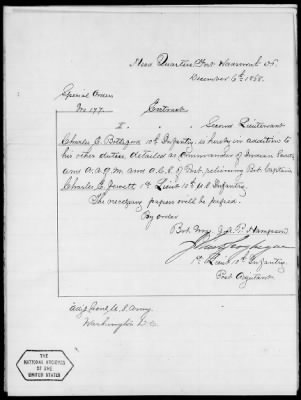 Head Quarters, Fort
December 6th, 1868.
Special Orders
No 197. Extract
II. Second Lieutenant
Charles E. 10th Infantry, is hereby in addition to
his other duties detailed as Commander of Indian Scouts
and A.A.Q.M. and A.C.S. of Post, relieving Captain
Charles E. Jewett 1st Lieut 10th U.S. Infantry.
The necessary papers will be passed.
By order
Bvt. Maj.
1st Lieut 10th Infantry
Post Adjutant
Adjt Genl U.S. Army.
Washington D.C.
THE
NATIONAL ARCHIVES
OF THE
UNITED STATES